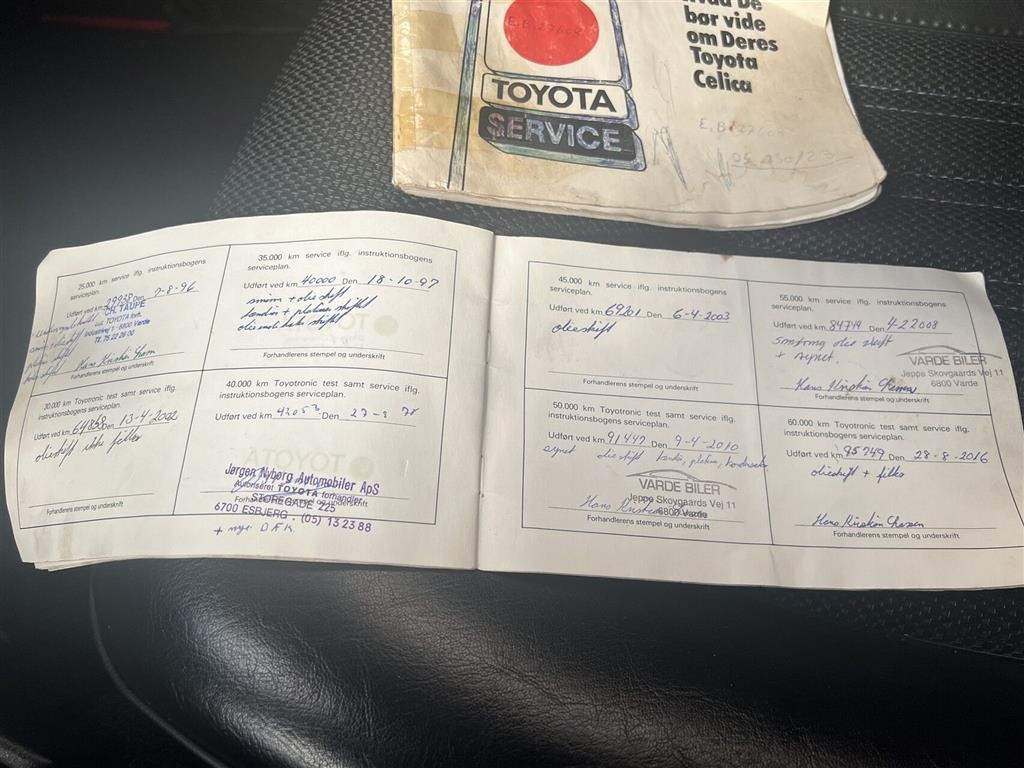 bør vide
om Deres
Toyota
Celica
TOYOTA
SERVICE
25.000 km service iflg. instruktionsbogens
serviceplan.
Udført ved km Den 7-8-96
CH. TAUPE
TOYOTA forh.
6800 Varde
Forhandlerens stempel og underskrift
35.000 km service iflg. instruktionsbogens
serviceplan.
Udført ved km 40000 Den 18-10-97
olieskift
Forhandlerens stempel og underskrift
30.000 km Toyotronic test samt service iflg.
instruktionsbogens serviceplan.
Udført ved km 64858 Den 13-4-2002
olieskift
Forhandlerens stempel og underskrift
40.000 km Toyotronic test samt service iflg.
instruktionsbogens serviceplan.
Udført ved km 42053 Den
Jørgen Nyborg Automobiler ApS
Autoriseret TOYOTA forhandler
Forhandlerens stempel og underskrift
STOREGADE 225
6700 ESBJERG - (05) 13 23 88
+ nye DÆK
45.000 km service iflg. instruktionsbogens
serviceplan.
Udført ved km 69201 Den 6-4-2003
olieskift
Forhandlerens stempel og underskrift
55.000 km service iflg. instruktionsbogens
serviceplan.
Udført ved km. 84749 Den 4-22008
smøring olie skift
+ synet.
VARDE BILER
Jeppe Skovgaards Vej 11
6800 Varde
Forhandlerens stempel og underskrift
50.000 km Toyotronic test samt service iflg.
instruktionsbogens serviceplan.
Udført ved km 91447 Den 9-4-2010
synet olieskift
VARDE BILER
Jeppe Skovgaards Vej 11
6800 Varde
Forhandlerens stempel og underskrift
60.000 km Toyotronic test samt service iflg.
instruktionsbogens serviceplan.
Udført ved km 95749 Den 28-8-2016
olieskift + filter
Forhandlerens stempel og underskrift